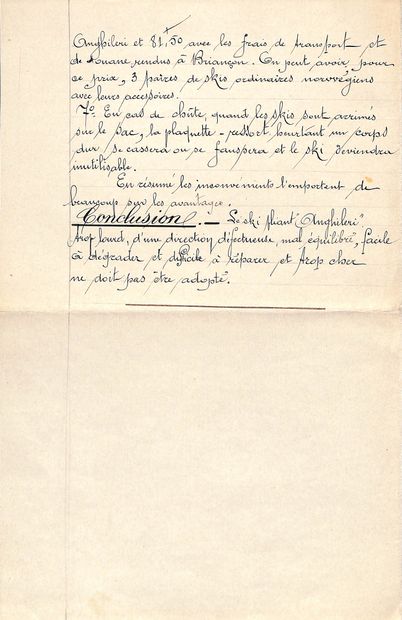 Anghileri et 81f,50 avec les frais de transport et
de douane rendus à Briançon. On peut avoir, pour
ce prix, 3 paires de skis ordinaires norvégiens
avec leurs accessoires.
7° En cas de chûte, quand les skis sont arrimés
sur le sac, la plaquette-ressort, heurtant un corps
dur se cassera ou se faussera et le ski deviendra
inutilisable.
En résumé les inconvénients l'emportent de
beaucoup sur les avantages.
Conclusion. — Le ski pliant "Anghileri"
trop lourd, d'une direction défectueuse mal équilibré, facile
à dégrader et difficile à réparer et trop cher
ne doit pas être adopté.